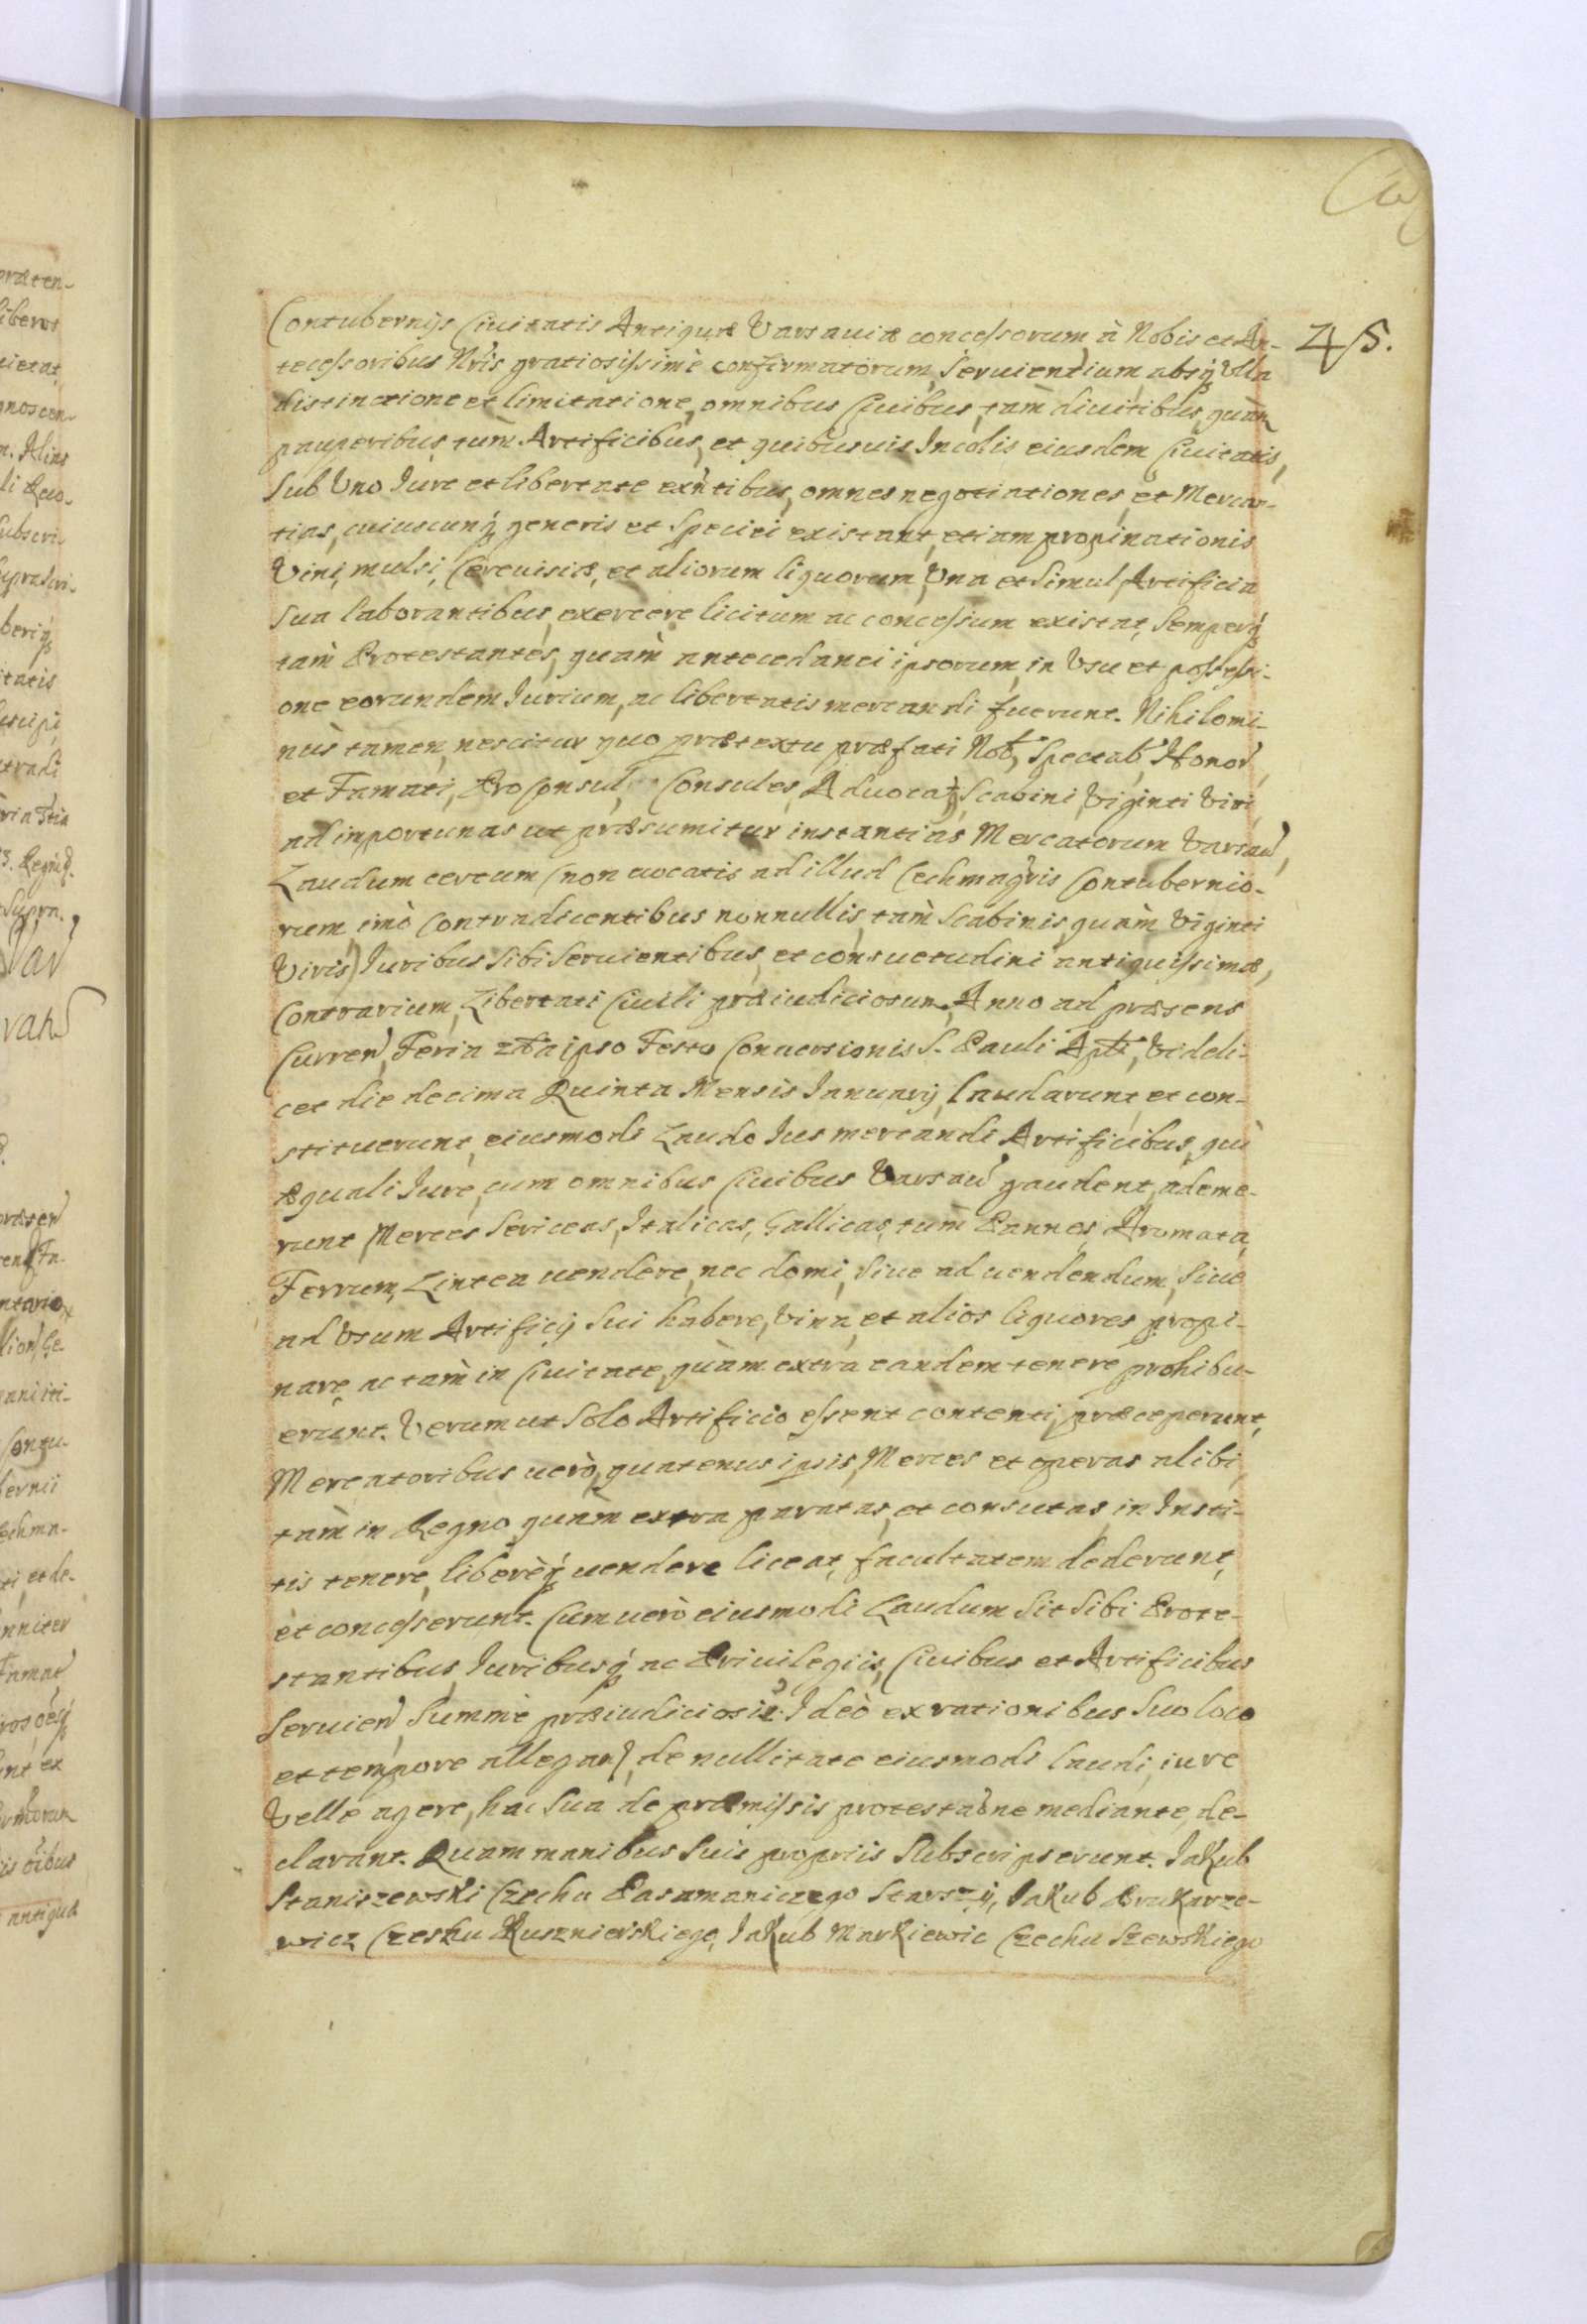 45.
Contubernijs Ciuitatis Antiquæ Varsauiæ concessorum, à Nobis et An-
tecessoribus Nr̃is gratiosissimè confirmatorum, Seruientium, absq; Vlla
distinctione et limitatione, omnibus Ciuibus, tam diuitibus, quàm
pauperibus, tum Artificibus, et quibusuis Incolis eiusdem Ciuitatis,
Sub Vno Iure et libertate exñtibus, omnes negotiationes, et Mercan-
tias, cuiuscunq; generis et Speciei existant, etiam propinationis
Vini, mulsi, Ceruisiæ, et aliorum liquorum, Vna et Simul Artificia
Sua laborantibus, exercere licitum ac concessum existat, Semperq;
tàm Protestantes, quàm antecedanei ipsorum, in Vsu et possessi-
one eorundem Iurium, ac libertatis mercandi fuerunt. Nihilomi-
nùs tamen, nescitur quo prætextu præfati Nob, Spectab, Honor,
et Famati, ProConsul, Consules, Aduocat, Scabini, Viginti Viri,
ad inportunas ut præsumitur instantias Mercatorum Varsau,
Laudum certum (non uocatis ad illud Cechmagris Contubernio-
rum imò Contradicentibus nonnullis, tàm Scabinis, quàm Viginti
Viris) Iuribus Sibi Seruientibus, et consuetudini antiquissimæ,
Contrarium, Libertati Ciuili præiudiciosum, Anno ad præsens
Curren, Feria 2da ipso Festo Conuersionis S. Pauli Apli, Videli-
cet die decima Quinta Mensis Ianuarij, laudarunt, et con-
stituerunt, eiusmodi Laudo Ius mercandi Artificibus, qui
æquali Iure, cum omnibus Ciuibus Varsau gaudent, ademe-
runt Merces Sericeas, Italicas, Gallicas, tum Pannos, Aromata,
Ferrum, Lintea uendere, nec domi, Siue ad uendendum, Siue
ad Vsum Artificij Sui habere, Vina, et alios liquores propi-
nare, ac tàm in Ciuitate, quàm extra eandem tenere prohibu-
erunt. Verum ut Solo Artificio essent contenti, præceperunt,
Mercatoribus uerò, quatenus ipsis, Merces et operas alibi,
tàm in Regno quàm extra paratas, et consutas, in Insti-
tis tenere, liberèq; uendere liceat, facultatem dederunt,
et concesserunt. Cum uerò eiusmodi Laudum Sit Sibi Prote-
stantibus, Iuribusq; ac Priuilegiis, Ciuibus et Artificibus
Seruien, Summè præiudiciosũ. Ideò ex rationibus Suo loco
et tempore allegan, de nullitate eiusmodi laudi, iure
Velle agere, hac Sua de præmissis protestaõne mediante, de-
clarant. Quam manibus Suis propriis Subscripserunt. Jakub
Staniszewski Czechu Pasamaniczego Starszÿ, Jakub Drukarze-
wicz Czechu Kusznierskiego, Jakub Markiewic Czechu Szewskiego